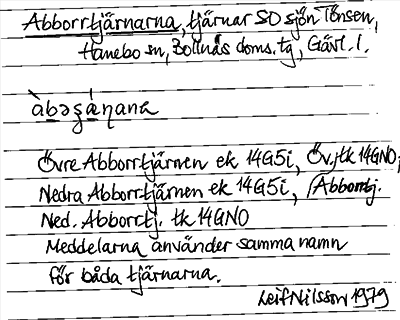 Abborrtjärnarna, tjärnar SO sjön Tönsen,
Hanebo sn, Bollnäs doms.tg, Gävl. l.
àbəʂǽɳana
Övre Abborrtjärnen ek 14G5i, Öv.,tk 14GNO,
Nedra Abborrtjärnen ek 14G5i, Abborrtj.
Ned. Abborrtj. tk 14GNO
Meddelarna använder samma namn
för båda tjärnarna.
Leif Nilsson 1979